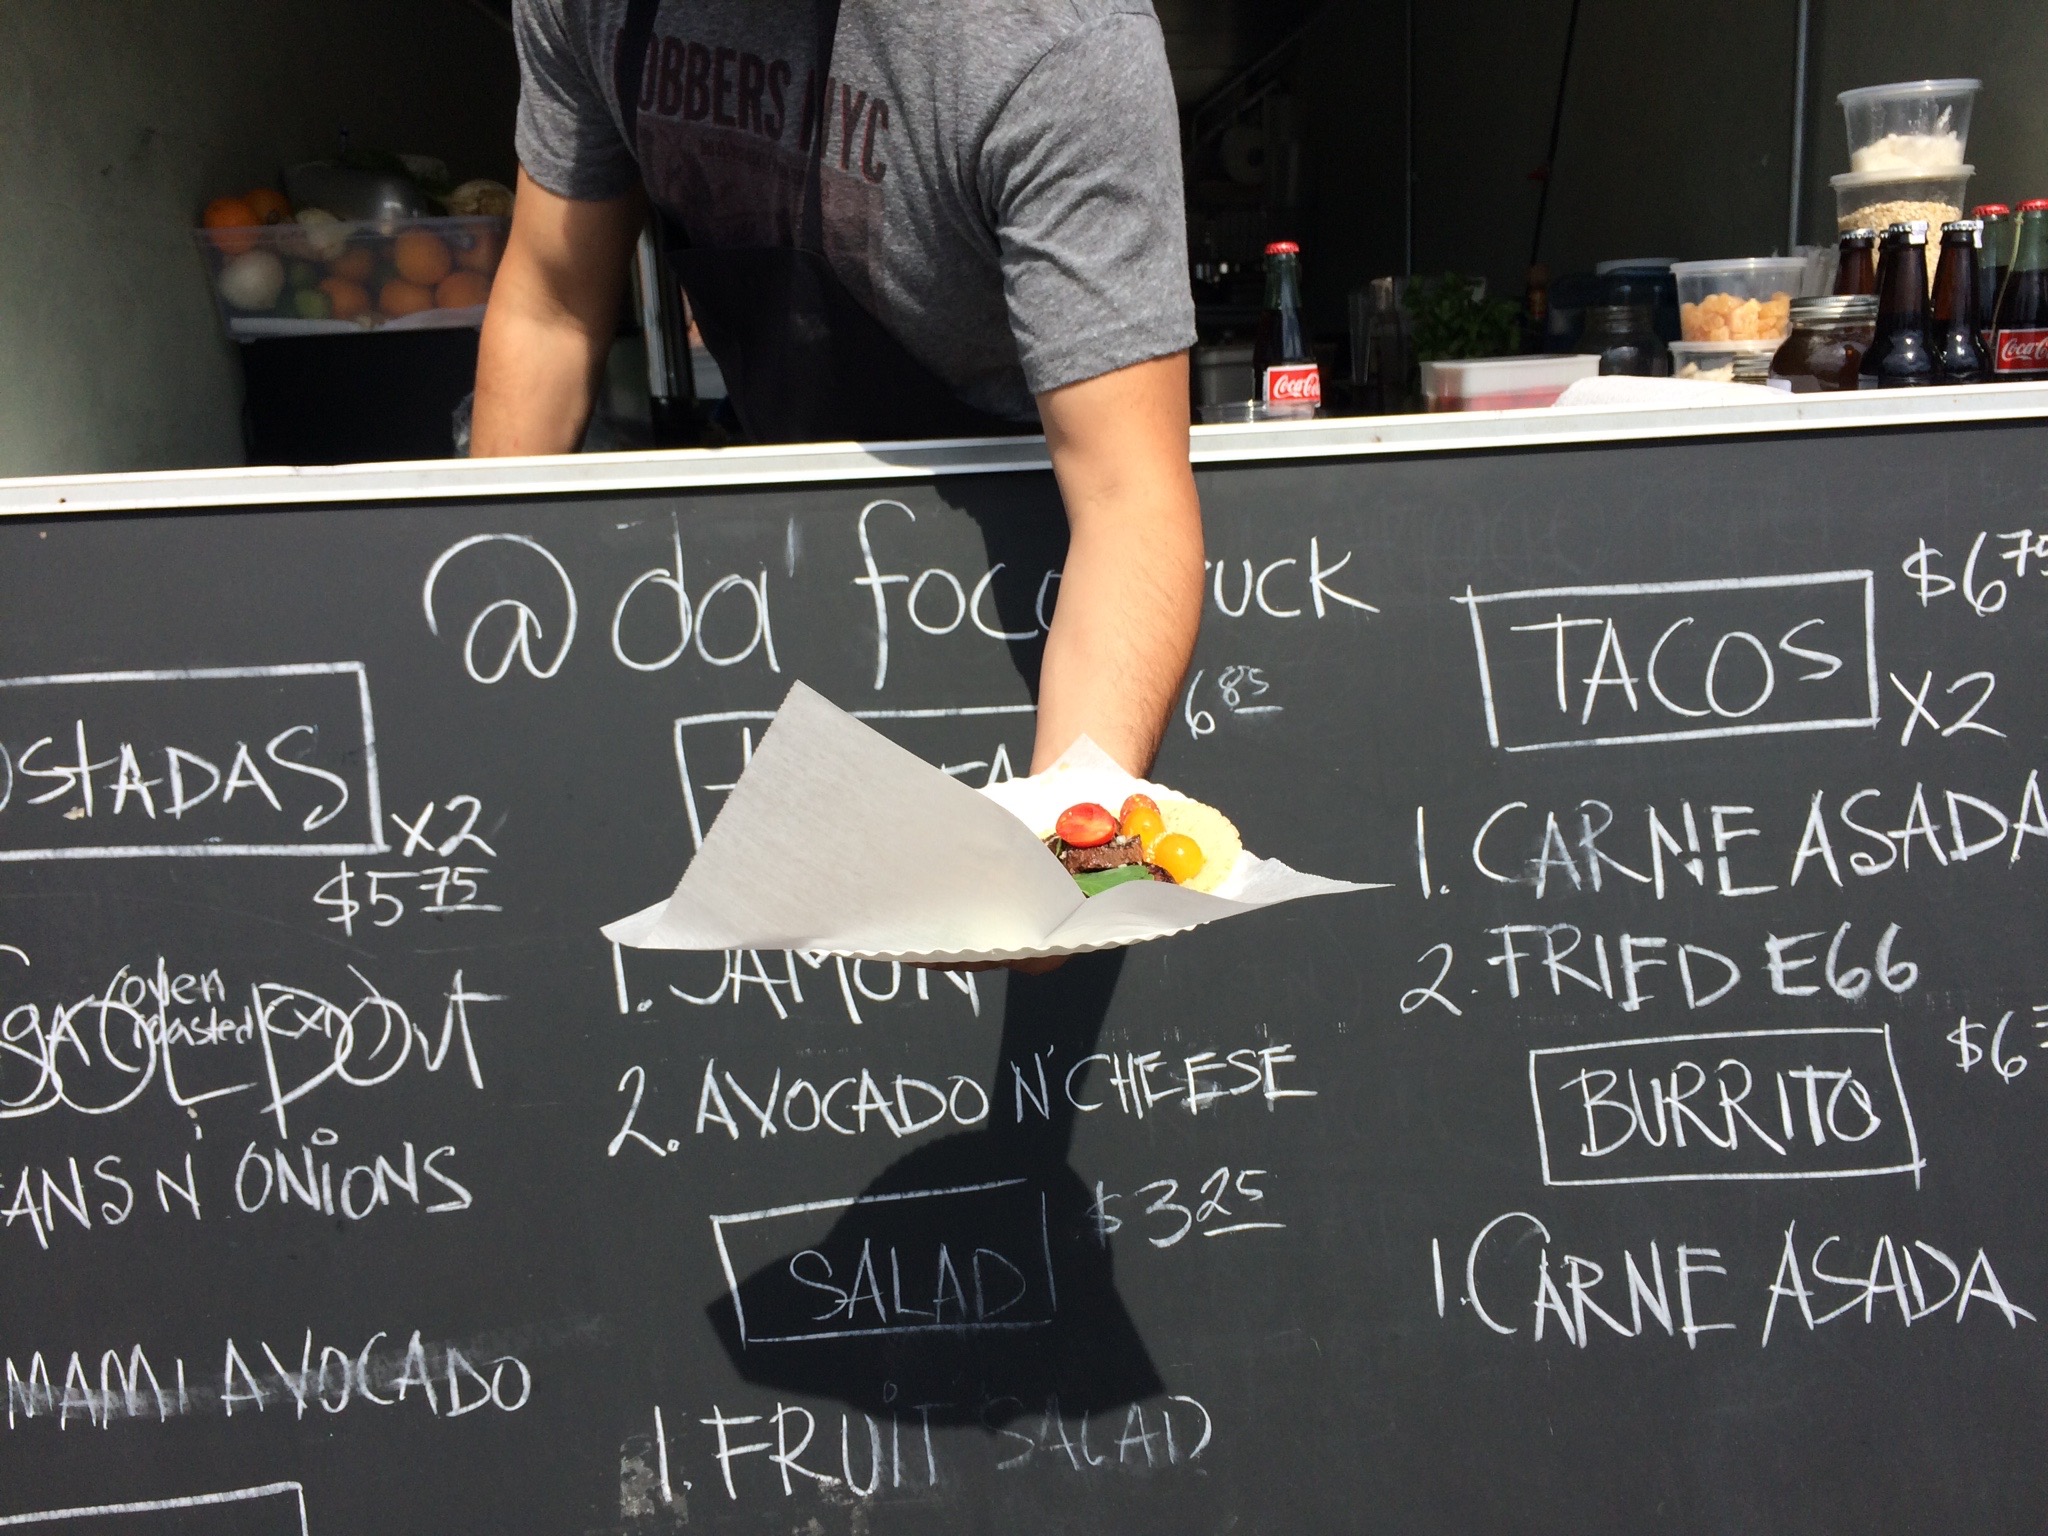 OBBERS NYC
Coca-Co
Coca-Co
@da' foco ruck
OSTADAS
X2
$5 75
oven
roasted
OUT
ANS N ONIONS
MAMI AVOCADO
6 85
1. JAMON
2. AVOCADO N' CHEESE
SALAD
$3 25
1. FRUIT SALAD
TACOS
$6 75
X2
1. CARNE ASADA
2. FRIED EGG
BURRITO
$6
1. CARNE ASADA